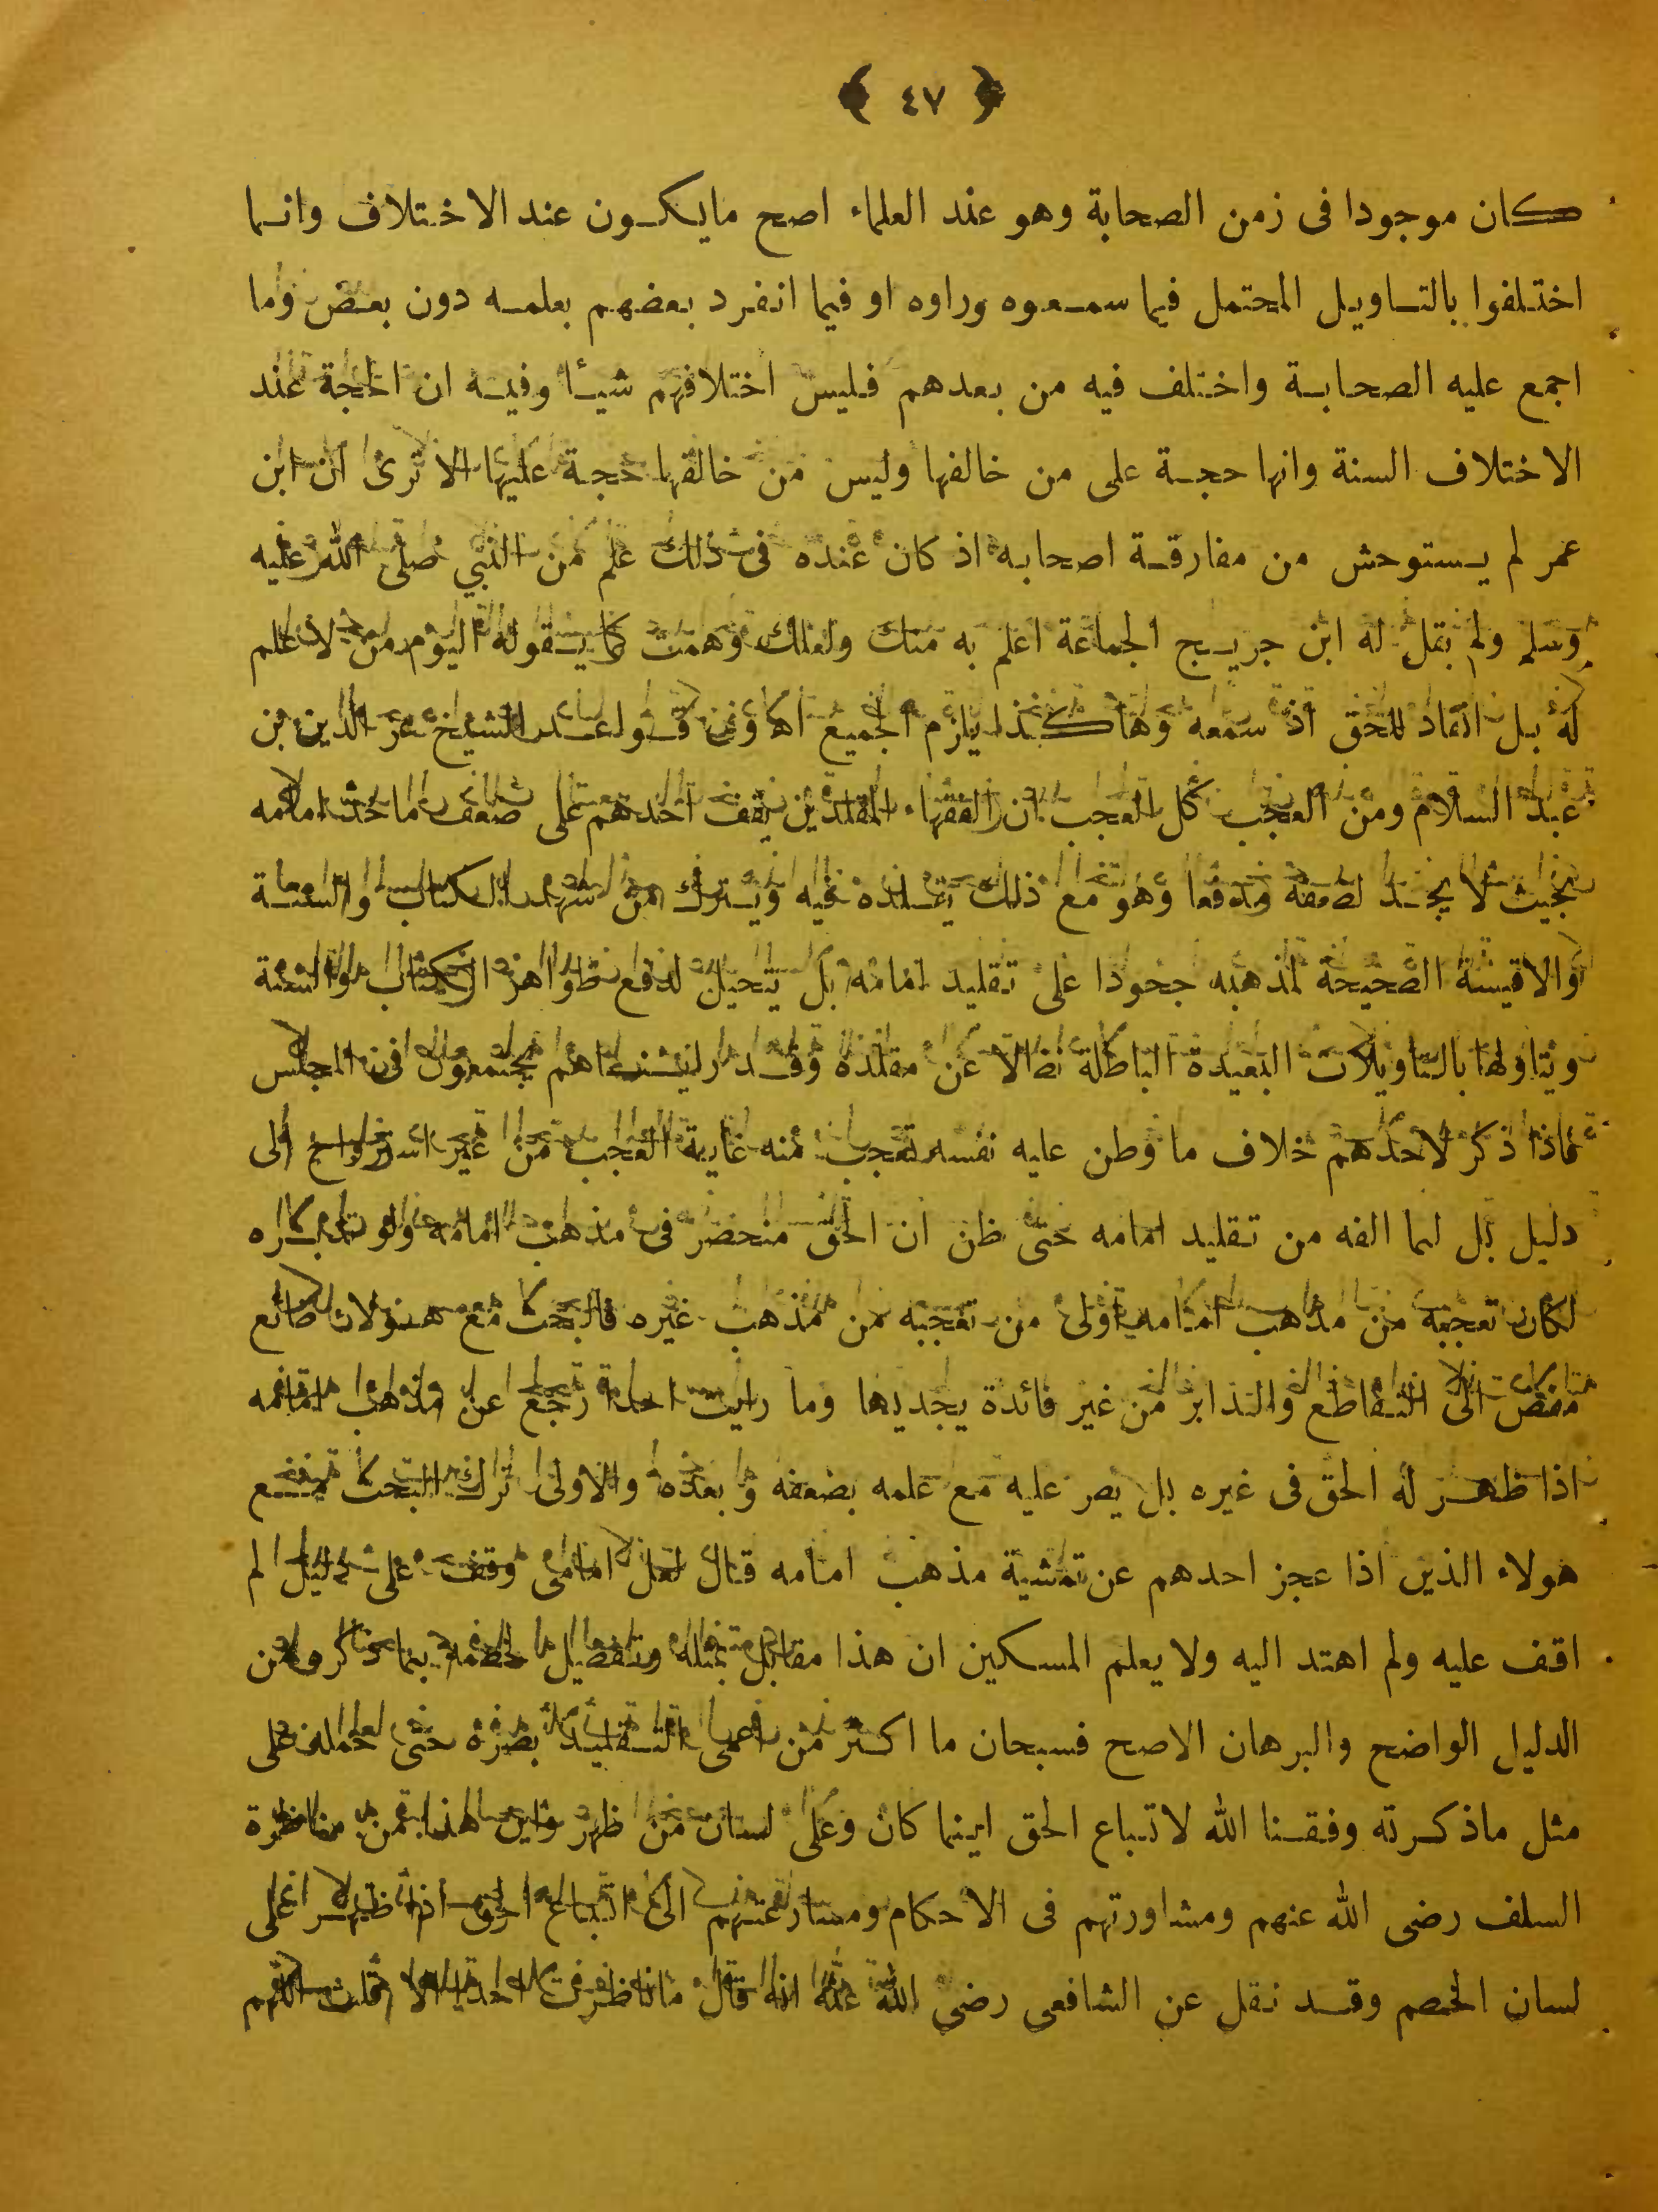 ﴿ ٤٧ ﴾
كان موجودا فى زمن الصحابة وهو عند العلماء اصح مايكون عند الاختلاف وانما
اختلفوا بالتاويل المحتمل فيما سمعوه وراوه او فيما انفرد بعضهم بعلمه دون بعض وما
اجمع عليه الصحابة واختلف فيه من بعدهم فليس اختلافهم شيئا وفيه ان الحجة عند
الاختلاف السنة وانها حجة على من خالفها وليس من خالفها حجة عليها الا ترى ان ابن
عمر لم يستوحش من مفارقة اصحابه اذ كان عنده فى ذلك علم من النبي صلى الله عليه
وسلم ولم يقل له ابن جريج الجماعة اعلم به منك ولعلك وهمت كما يقوله اليوم من لا علم
له بل انقاد للحق اذ سمعه وهاكذا يلزم الجميع اه وفى قواعد الشيخ عز الدين بن
عبد السلام ومن العجب كل العجب ان الفقهاء المقلدين يقف احدهم على ضعف ماخذ امامه
بحيث لا يجد لضعفه مدفعا وهو مع ذلك يقلده فيه ويترك من شهد الكتاب والسنة
والاقيسة الصحيحة لمذهبه جحودا على تقليد امامه بل يتحيل لدفع ظواهر الكتاب والسنة
ويتاولها بالتاويلات البعيدة الباطلة نضالا عن مقلده وقد رايناهم يجتمعون فى المجالس
فاذا ذكر لاحدهم خلاف ما وطن عليه نفسه تعجب منه غاية العجب من غير استرواح الى
دليل بل لما الفه من تقليد امامه حتى ظن ان الحق منحصر فى مذهب امامه ولو تدبره
لكان تعجبه من مذهب امامه اولى من تعجبه من مذهب غيره فالبحث مع هولاء ضائع
مفض الى التقاطع والتدابر من غير فائدة يجديها وما رايت احدا رجع عن مذهب امامه
اذا ظهر له الحق فى غيره بل يصر عليه مع علمه بضعفه وبعده والاولى ترك البحث مع
هولاء الذين اذا عجز احدهم عن تمشية مذهب امامه قال لعل امامى وقف على دليل لم
اقف عليه ولم اهتد اليه ولا يعلم المسكين ان هذا مقابل بمثله ويفضل لخصمه بما ذكره من
الدليل الواضح والبرهان الاصح فسبحان ما اكثر من اعمى التقليد بصره حتى حمله على
مثل ماذكرته وفقنا الله لاتباع الحق اينما كان وعلى لسان من ظهر واين هذا من مناظرة
السلف رضى الله عنهم ومشاورتهم فى الاحكام ومسارعتهم الى اتباع الحق اذا ظهر على
لسان الخصم وقد نقل عن الشافعى رضى الله عنه انه قال ماناظرت احدا الا قلت اللهم